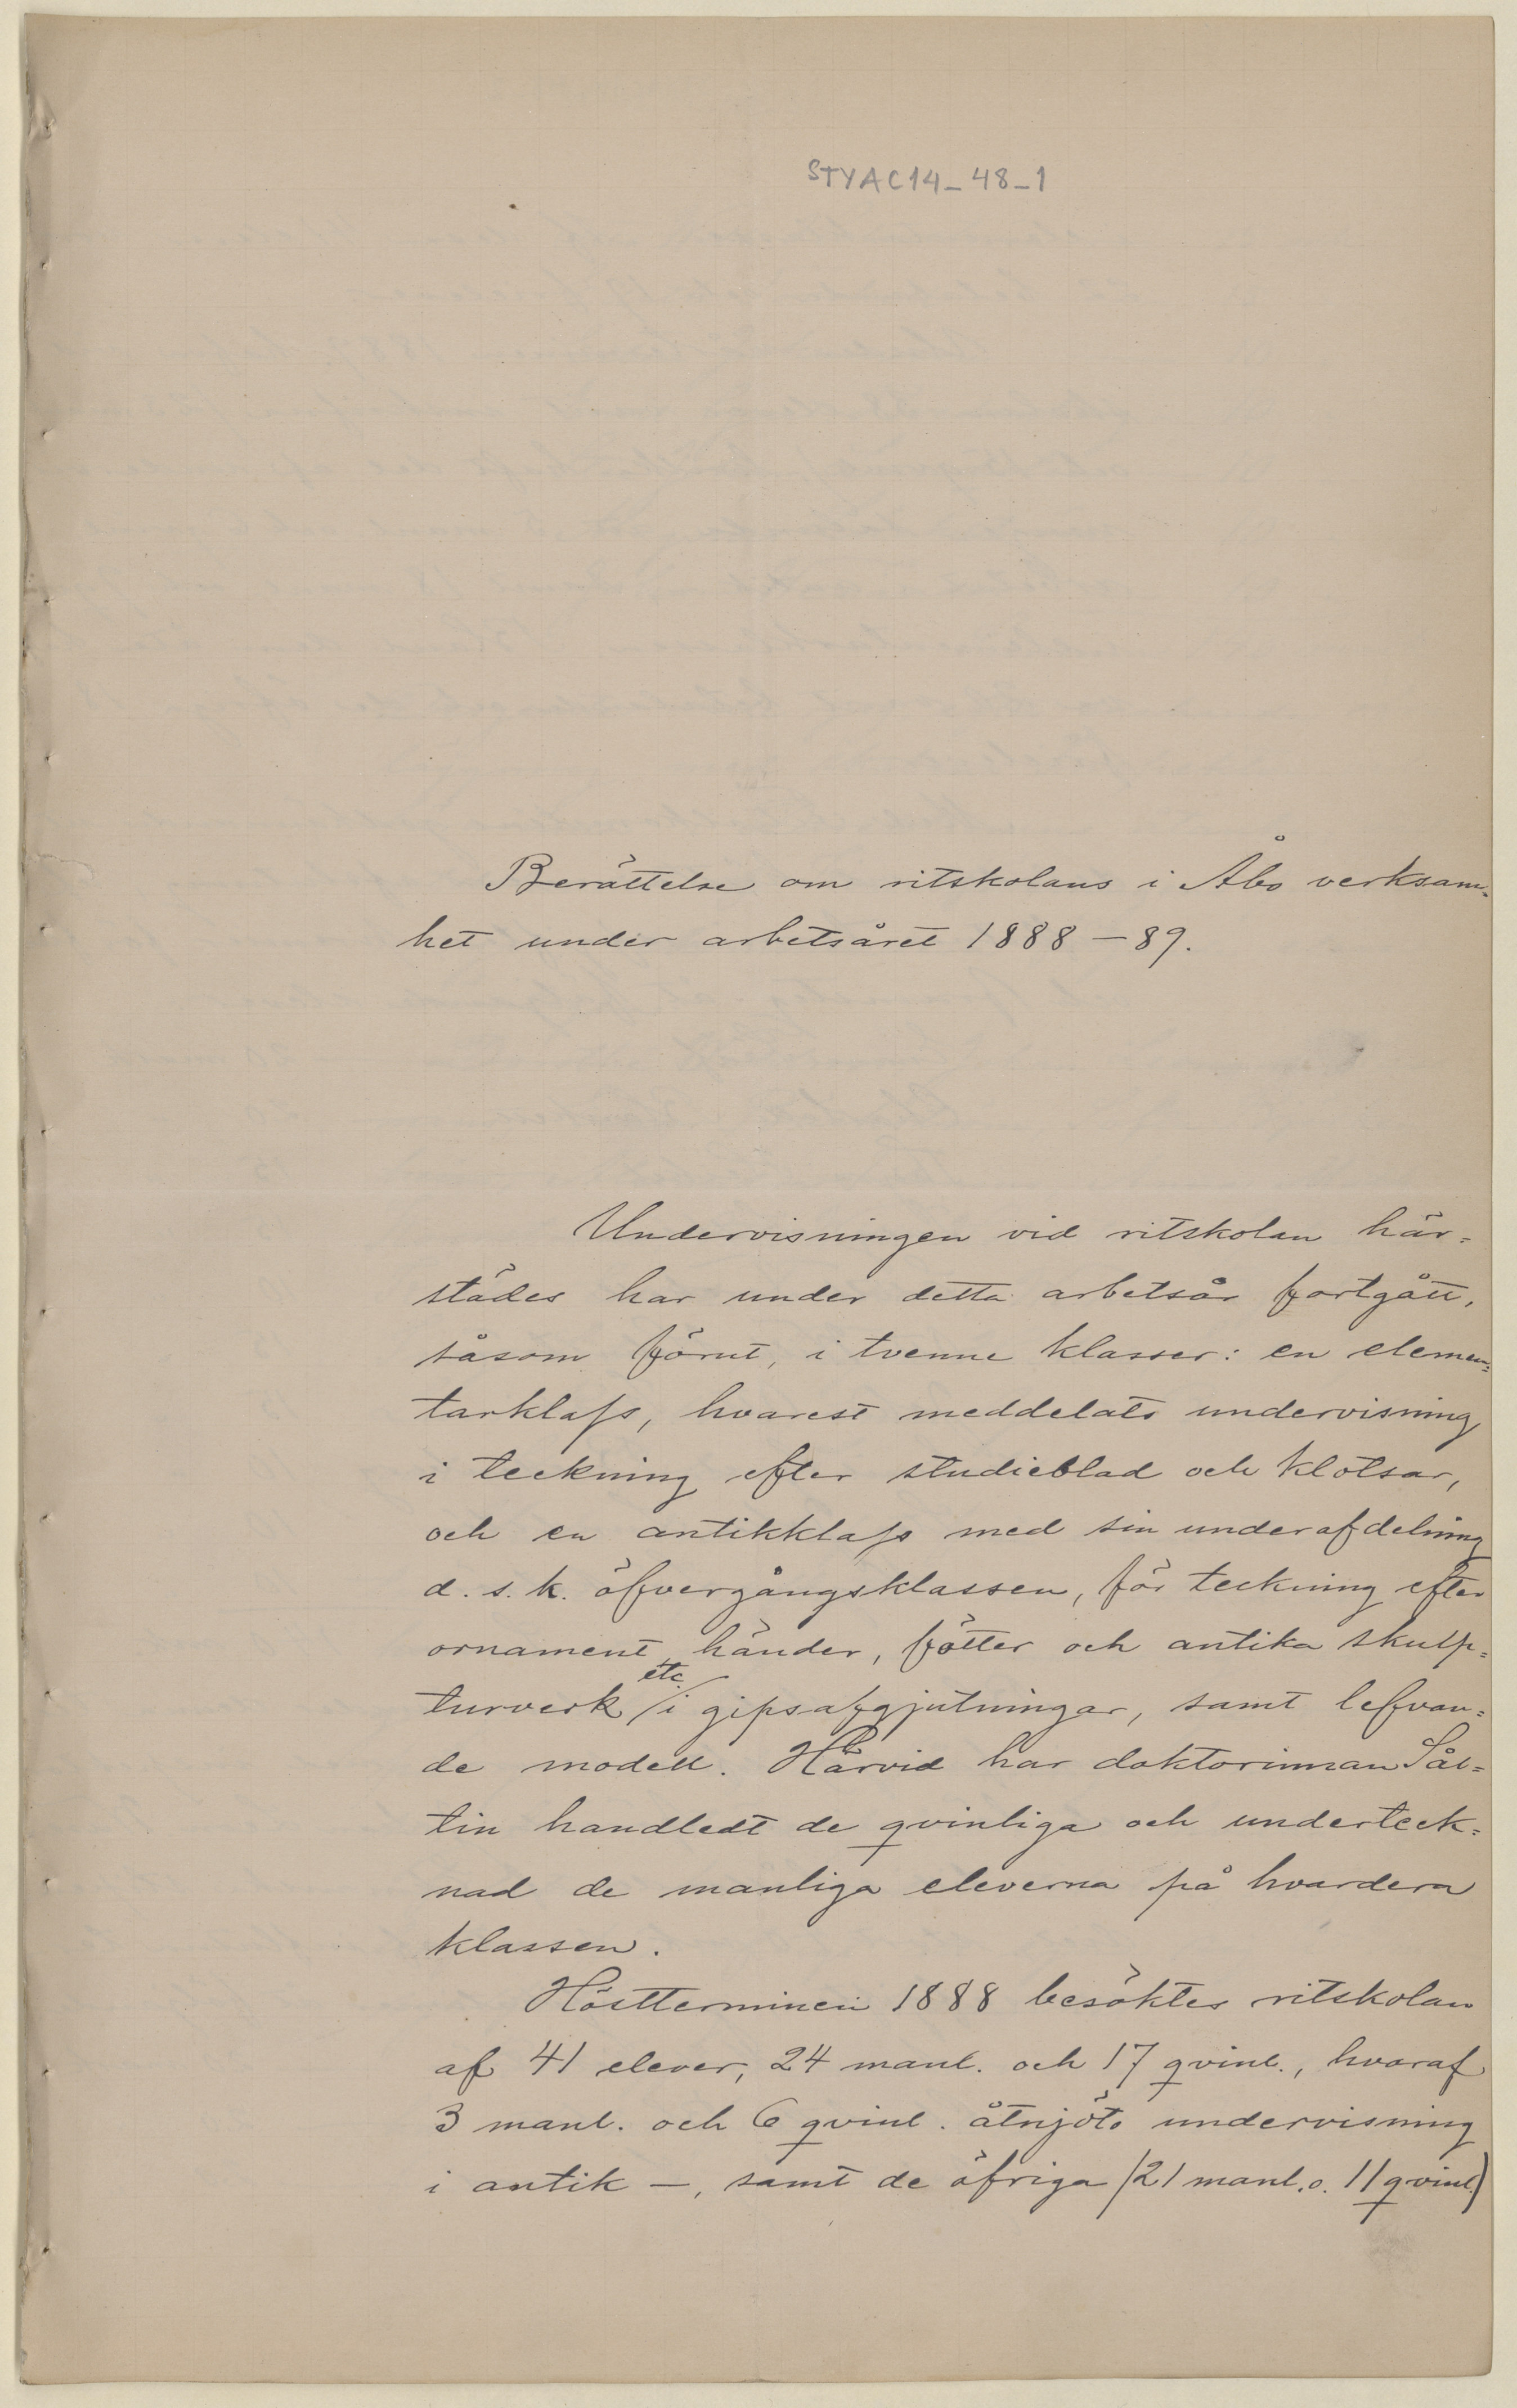 STYAC14_48_1
Berättelse om ritskolans i Åbo verksam=
het under arbetsåret 1888 — 89.
Undervisningen vid ritskolan här=
städes har under detta arbetsår fortgått,
såsom förut, i tvenne klasser: en elemen=
tarklass, hvarest meddelats undervisning
i teckning efter studieblad och klotsar,
och en antikklass med sin underafdelning
d. s. k. öfvergångsklassen, för teckning efter
ornament, händer, fötter och antika skulp=
turverk etc. i gipsafgjutningar, samt lefvan=
de modell. Härvid har doktorinnan Sål=
tin handledt de qvinliga och underteck=
nad de manliga eleverna på hvardera
klassen.
Höstterminen 1888 besöktes ritskolan
af 41 elever, 24 manl. och 17 qvinl., hvaraf
3 manl. och 6 qvinl. åtnjöto undervisning
i antik —, samt de öfriga (21 manl. o. 11 qvinl.)